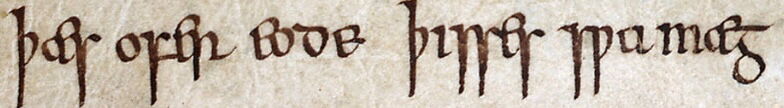 þæs ofer eode þisses sƿa mæg